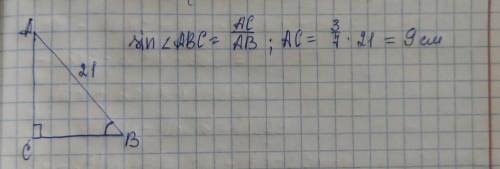 A
21
C
B
sin ∠ABC = AC/AB ; AC = 3/7 · 21 = 9 см